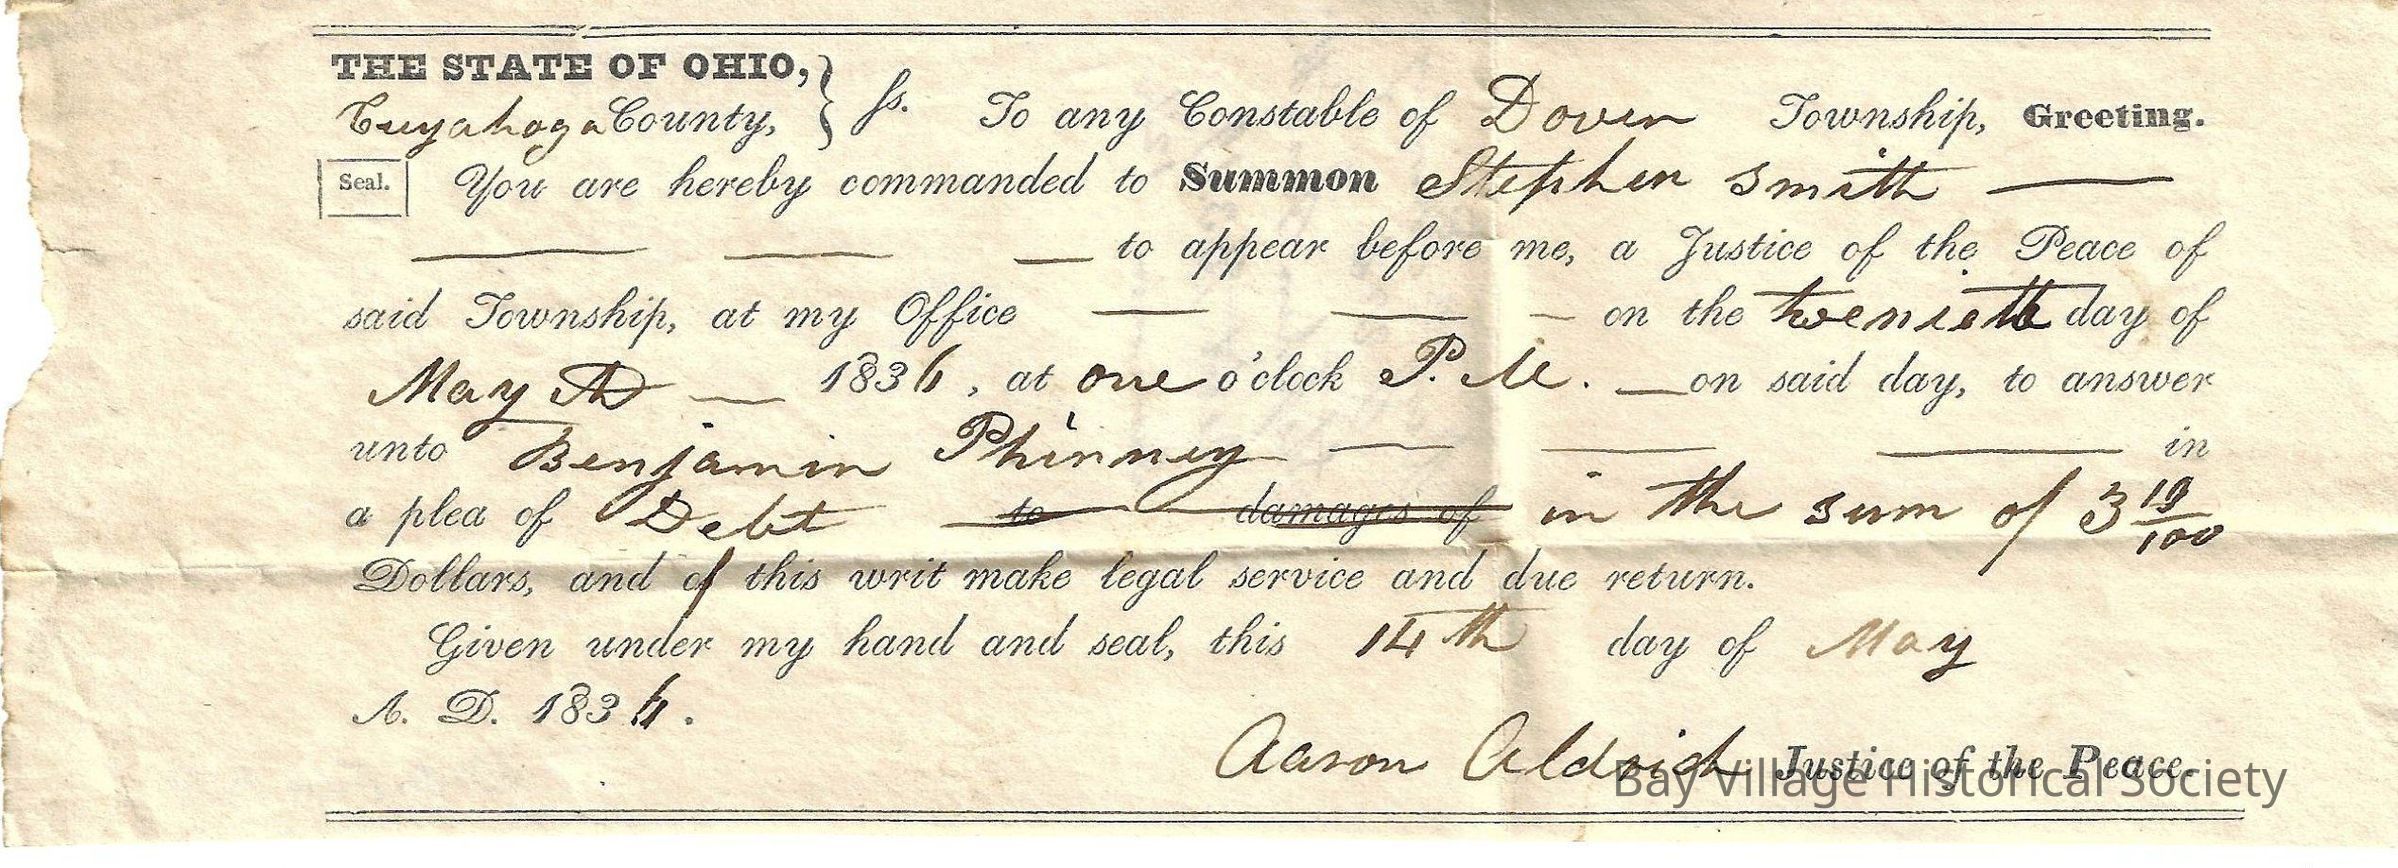 THE STATE OF OHIO,
Cuyahoga County, } ss. To any Constable of Dover Township, Greeting.
Seal. You are hereby commanded to Summon Stephen Smith —
— — — to appear before me, a Justice of the Peace of
said Township, at my Office — — - on the twenieth day of
May AD — 1836, at one o'clock P. M. — on said day, to answer
unto Benjamin Phinney — — — in
a plea of Debt to damages of in the sum of 3 19/100
Dollars, and of this writ make legal service and due return.
Given under my hand and seal, this 14th day of May
A. D. 1836.
Aaron Aldrich Justice of the Peace.
Bay Village Historical Society